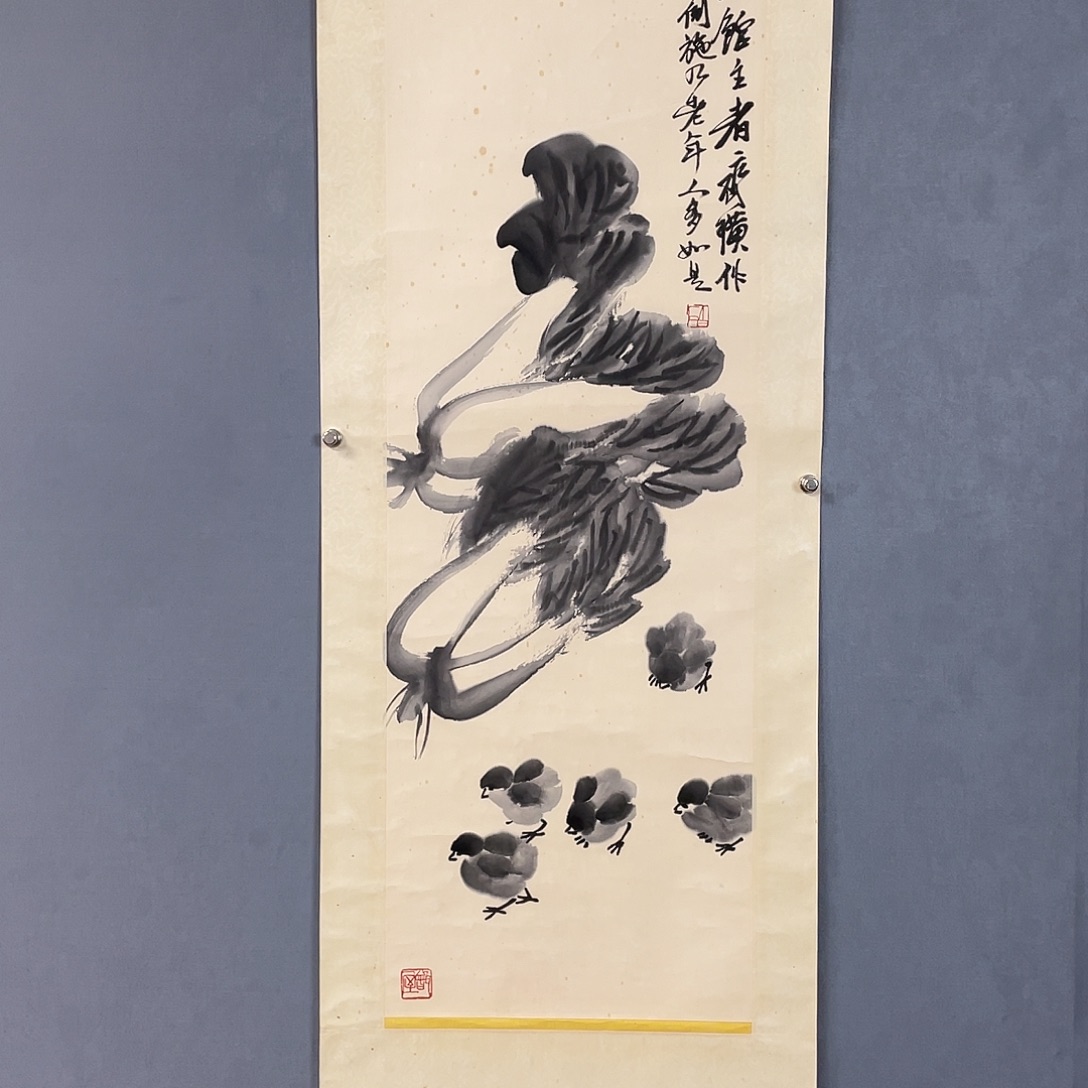 館主者齊璜作
倒施乃老年人多如是